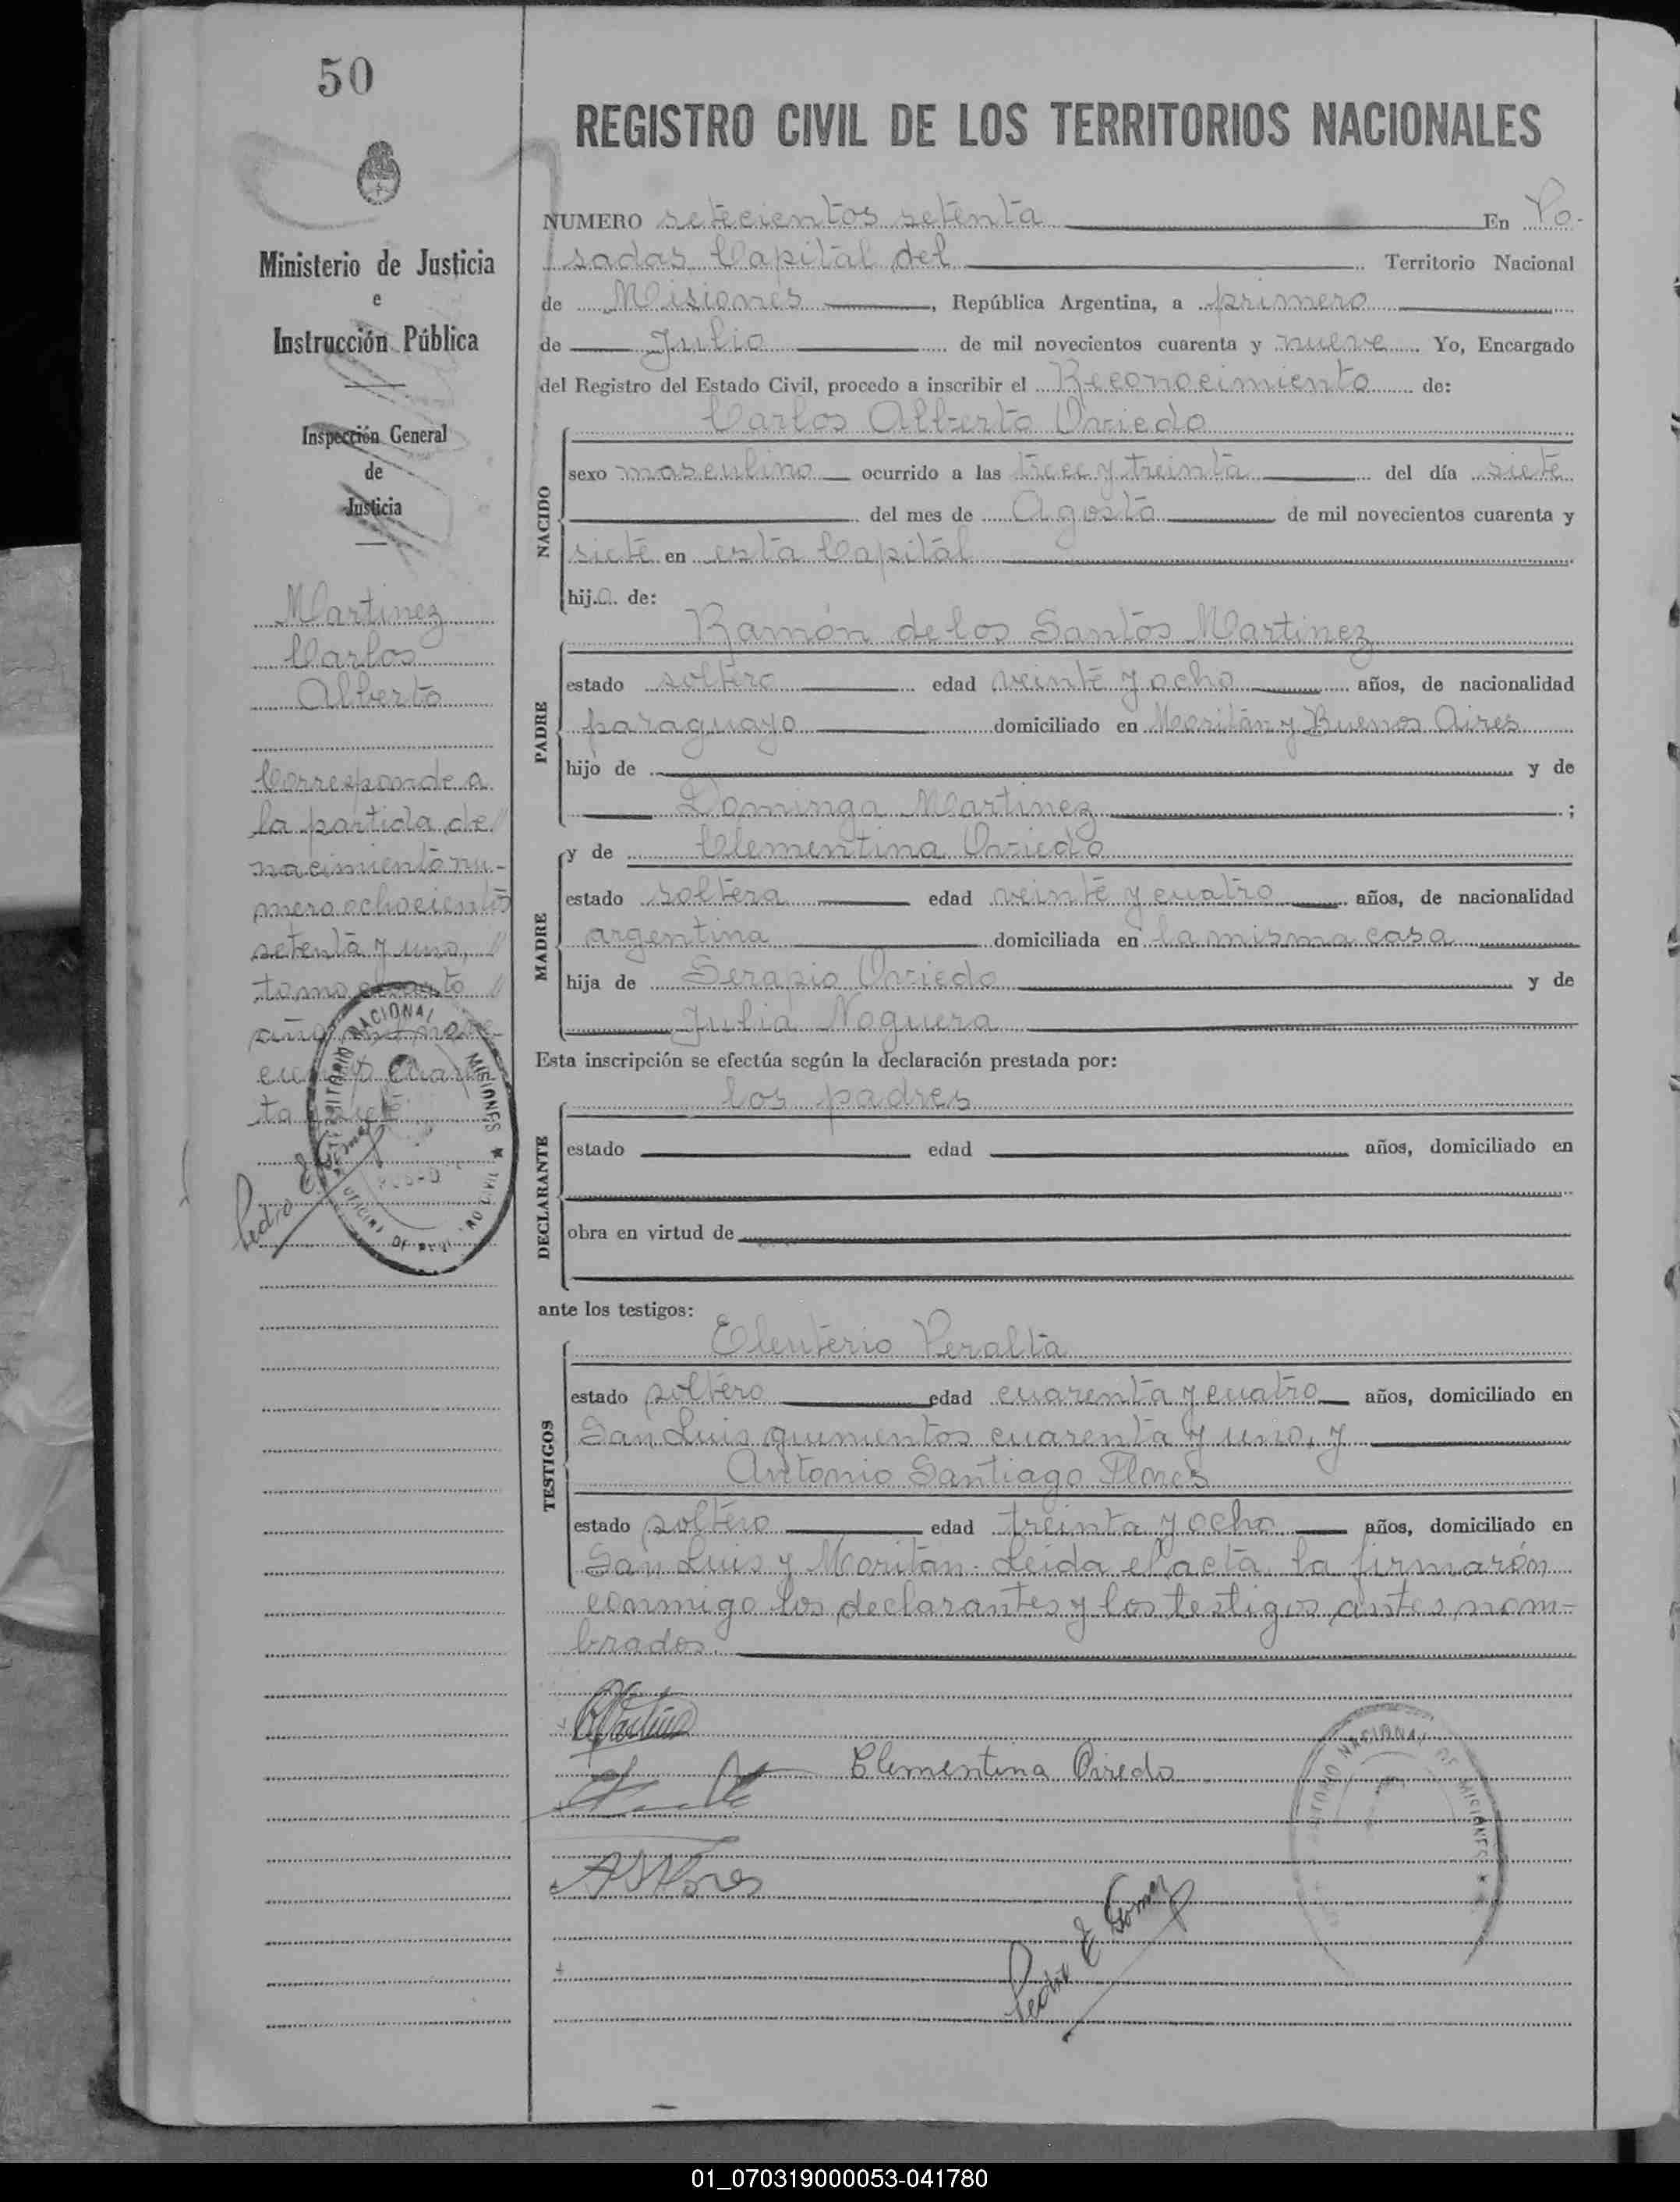 50
Ministerio de Justicia
e
Instrucción Pública
Inspección General
de
Justicia
Martinez
Carlos
Alberto
Corresponde a
la partida de
nacimiento nu-
mero ochocientos
setenta y uno,
tomo cuarto
año
ta
Pedro E Gomez
TERRITORIO NACIONAL DE MISIONES
REGISTRO CIVIL DE LOS TERRITORIOS NACIONALES
NUMERO setecientos setenta En Po-
sadas Capital del Territorio Nacional
de Misiones, República Argentina, a primero
de Julio de mil novecientos cuarenta y nueve Yo, Encargado
del Registro del Estado Civil, procedo a inscribir el Reconocimiento de:
NACIDO
Carlos Alberto Oviedo
sexo masculino ocurrido a las trece y treinta del día siete
del mes de Agosto de mil novecientos cuarenta y
siete en esta Capital
hijo de:
PADRE
Ramón de los Santos Martinez
estado soltero edad veinte y ocho años, de nacionalidad
paraguayo domiciliado en Moritán y Buenos Aires
hijo de y de
Dominga Martinez ;
MADRE
y de Clementina Oviedo
estado soltera edad veinte y cuatro años, de nacionalidad
argentina domiciliada en la misma casa
hija de Serapio Oviedo y de
Julia Noguera
Esta inscripción se efectúa según la declaración prestada por:
DECLARANTE
los padres
estado edad años, domiciliado en
obra en virtud de
ante los testigos:
TESTIGOS
Eleuterio Peralta
estado soltero edad cuarenta y cuatro años, domiciliado en
San Luis quinientos cuarenta y uno, y
Antonio Santiago Flores
estado soltero edad treinta y ocho años, domiciliado en
San Luis y Moritán. Leida el acta, la firmarón
conmigo los declarantes y los testigos antes nom-
brados.
Clementina Oviedo
A S Flores
Pedro E Gomez
NACIONAL DE MISIONES
01_070319000053-041780